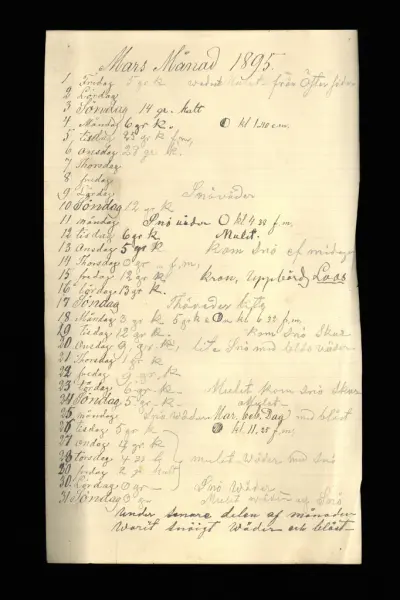 Mars Månad 1895.
1 Fredag 5 gr K
2 Lördag
3 Söndag 14 gr. kallt
4 Måndag 6 gr K. kl 1.40 e.m.
5 tisdag 25 gr K f,m,
6 Onsdag 27 gr K.
7 Thorsdag
8 fredag
9 Lördag Snöväder
10 Söndag 12 gr K
11 måndag Snö väder kl 4.38 f.m,
12 tisdag 6 gr K Mulit
13 Onsdag 5 gr K kom Snö ef midag
14 Thorsdag 0 gr - f,m,
15 fredag 12 gr K. Kron, Uppbörd, Loos
16 Lördag 13 gr K.
17 Söndag Thöveder
18 Måndag 3 gr K 5 gr K kl 6.32 f.m,
19 tisdag 12 gr K Kom Snö Skar
20 Onsdag 9 gr K, lite Snö med blåsväder
21 Thorsdag 1 gr K
22 fredag 9 gr K
23 Lördag 6 gr K Mulet kom snö Skar
24 Söndag 5 gr K.
25 måndag Snö Wäder Mar. beb. Dag med blåst
26 tisdag 5 gr K kl. 11.25 f.m,
27 Onsdag 4 gr K
28 torsdag 4 gr K mulet wäder med snö
29 fredag 2 gr kallt
30 Lördag 0 gr - Snö Wäder
31 Söndag 0 gr Mulet wäder Snö
under senare delen af månaden
warit snöigt Wäder och blåst